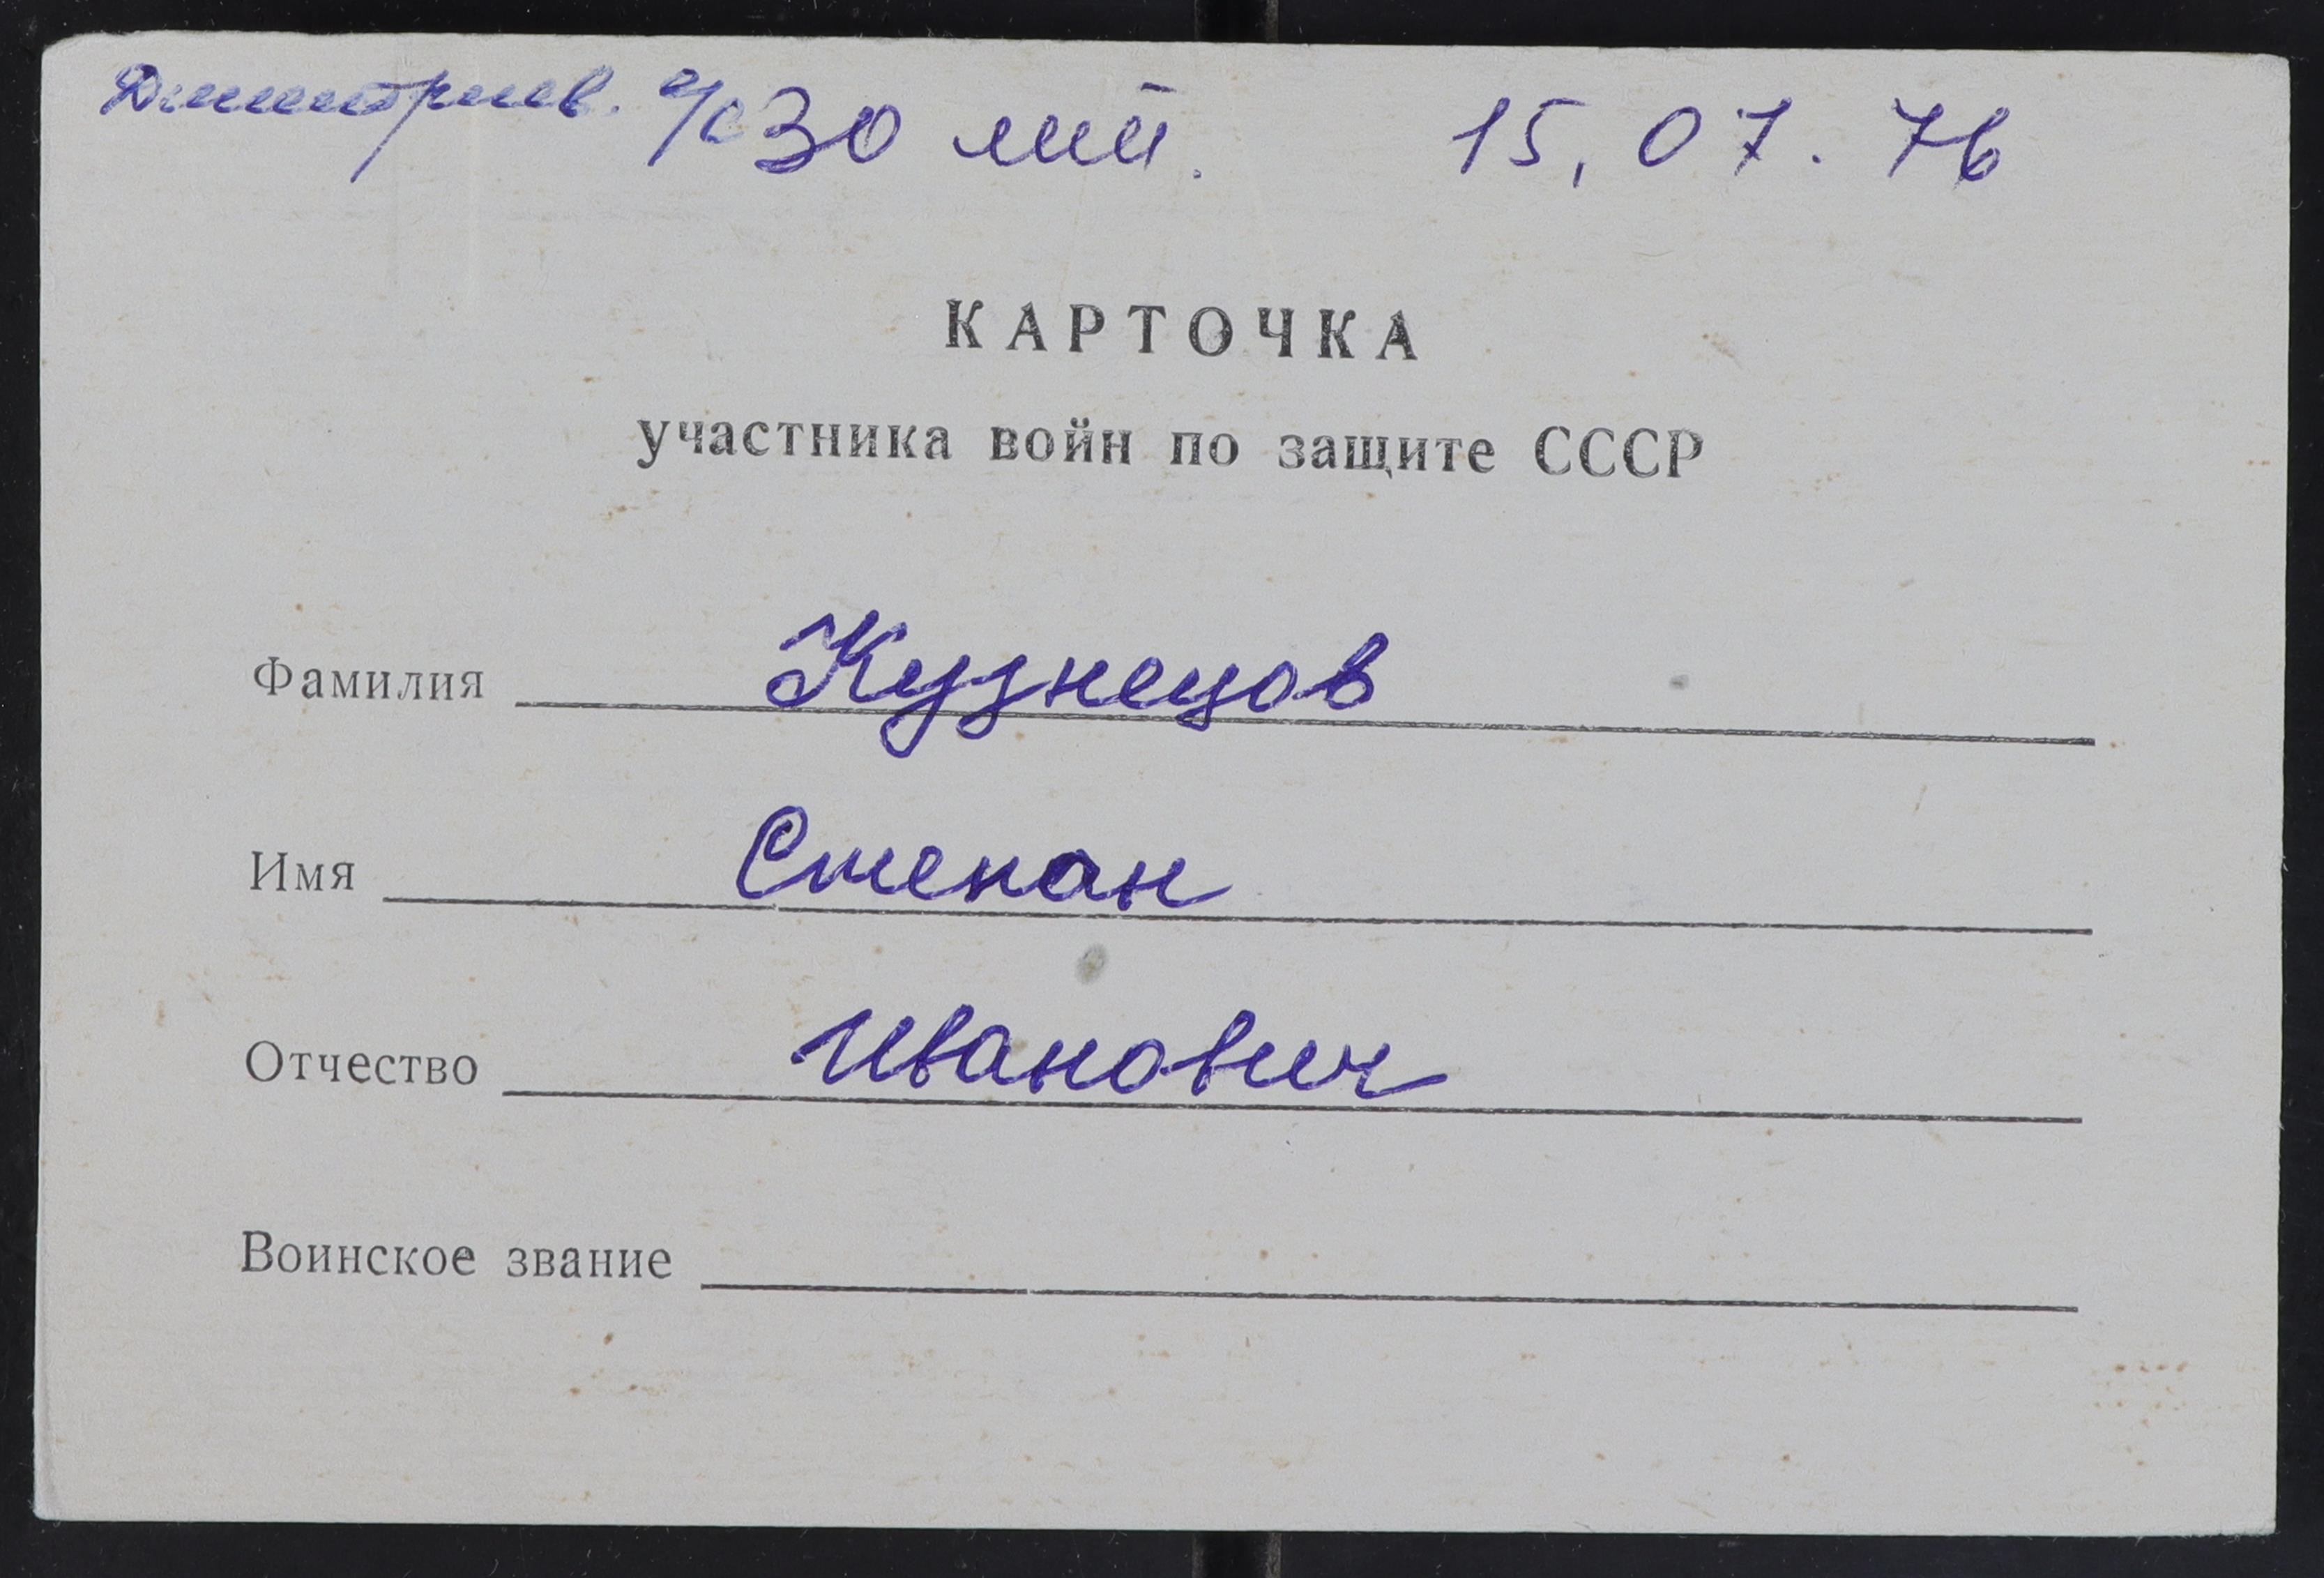 Дмитриев. с/с 30 лет. 15.07.76
КАРТОЧКА
участника войн по защите СССР
Фамилия Кузнецов
Имя Степан
Отчество Иванович
Воинское звание